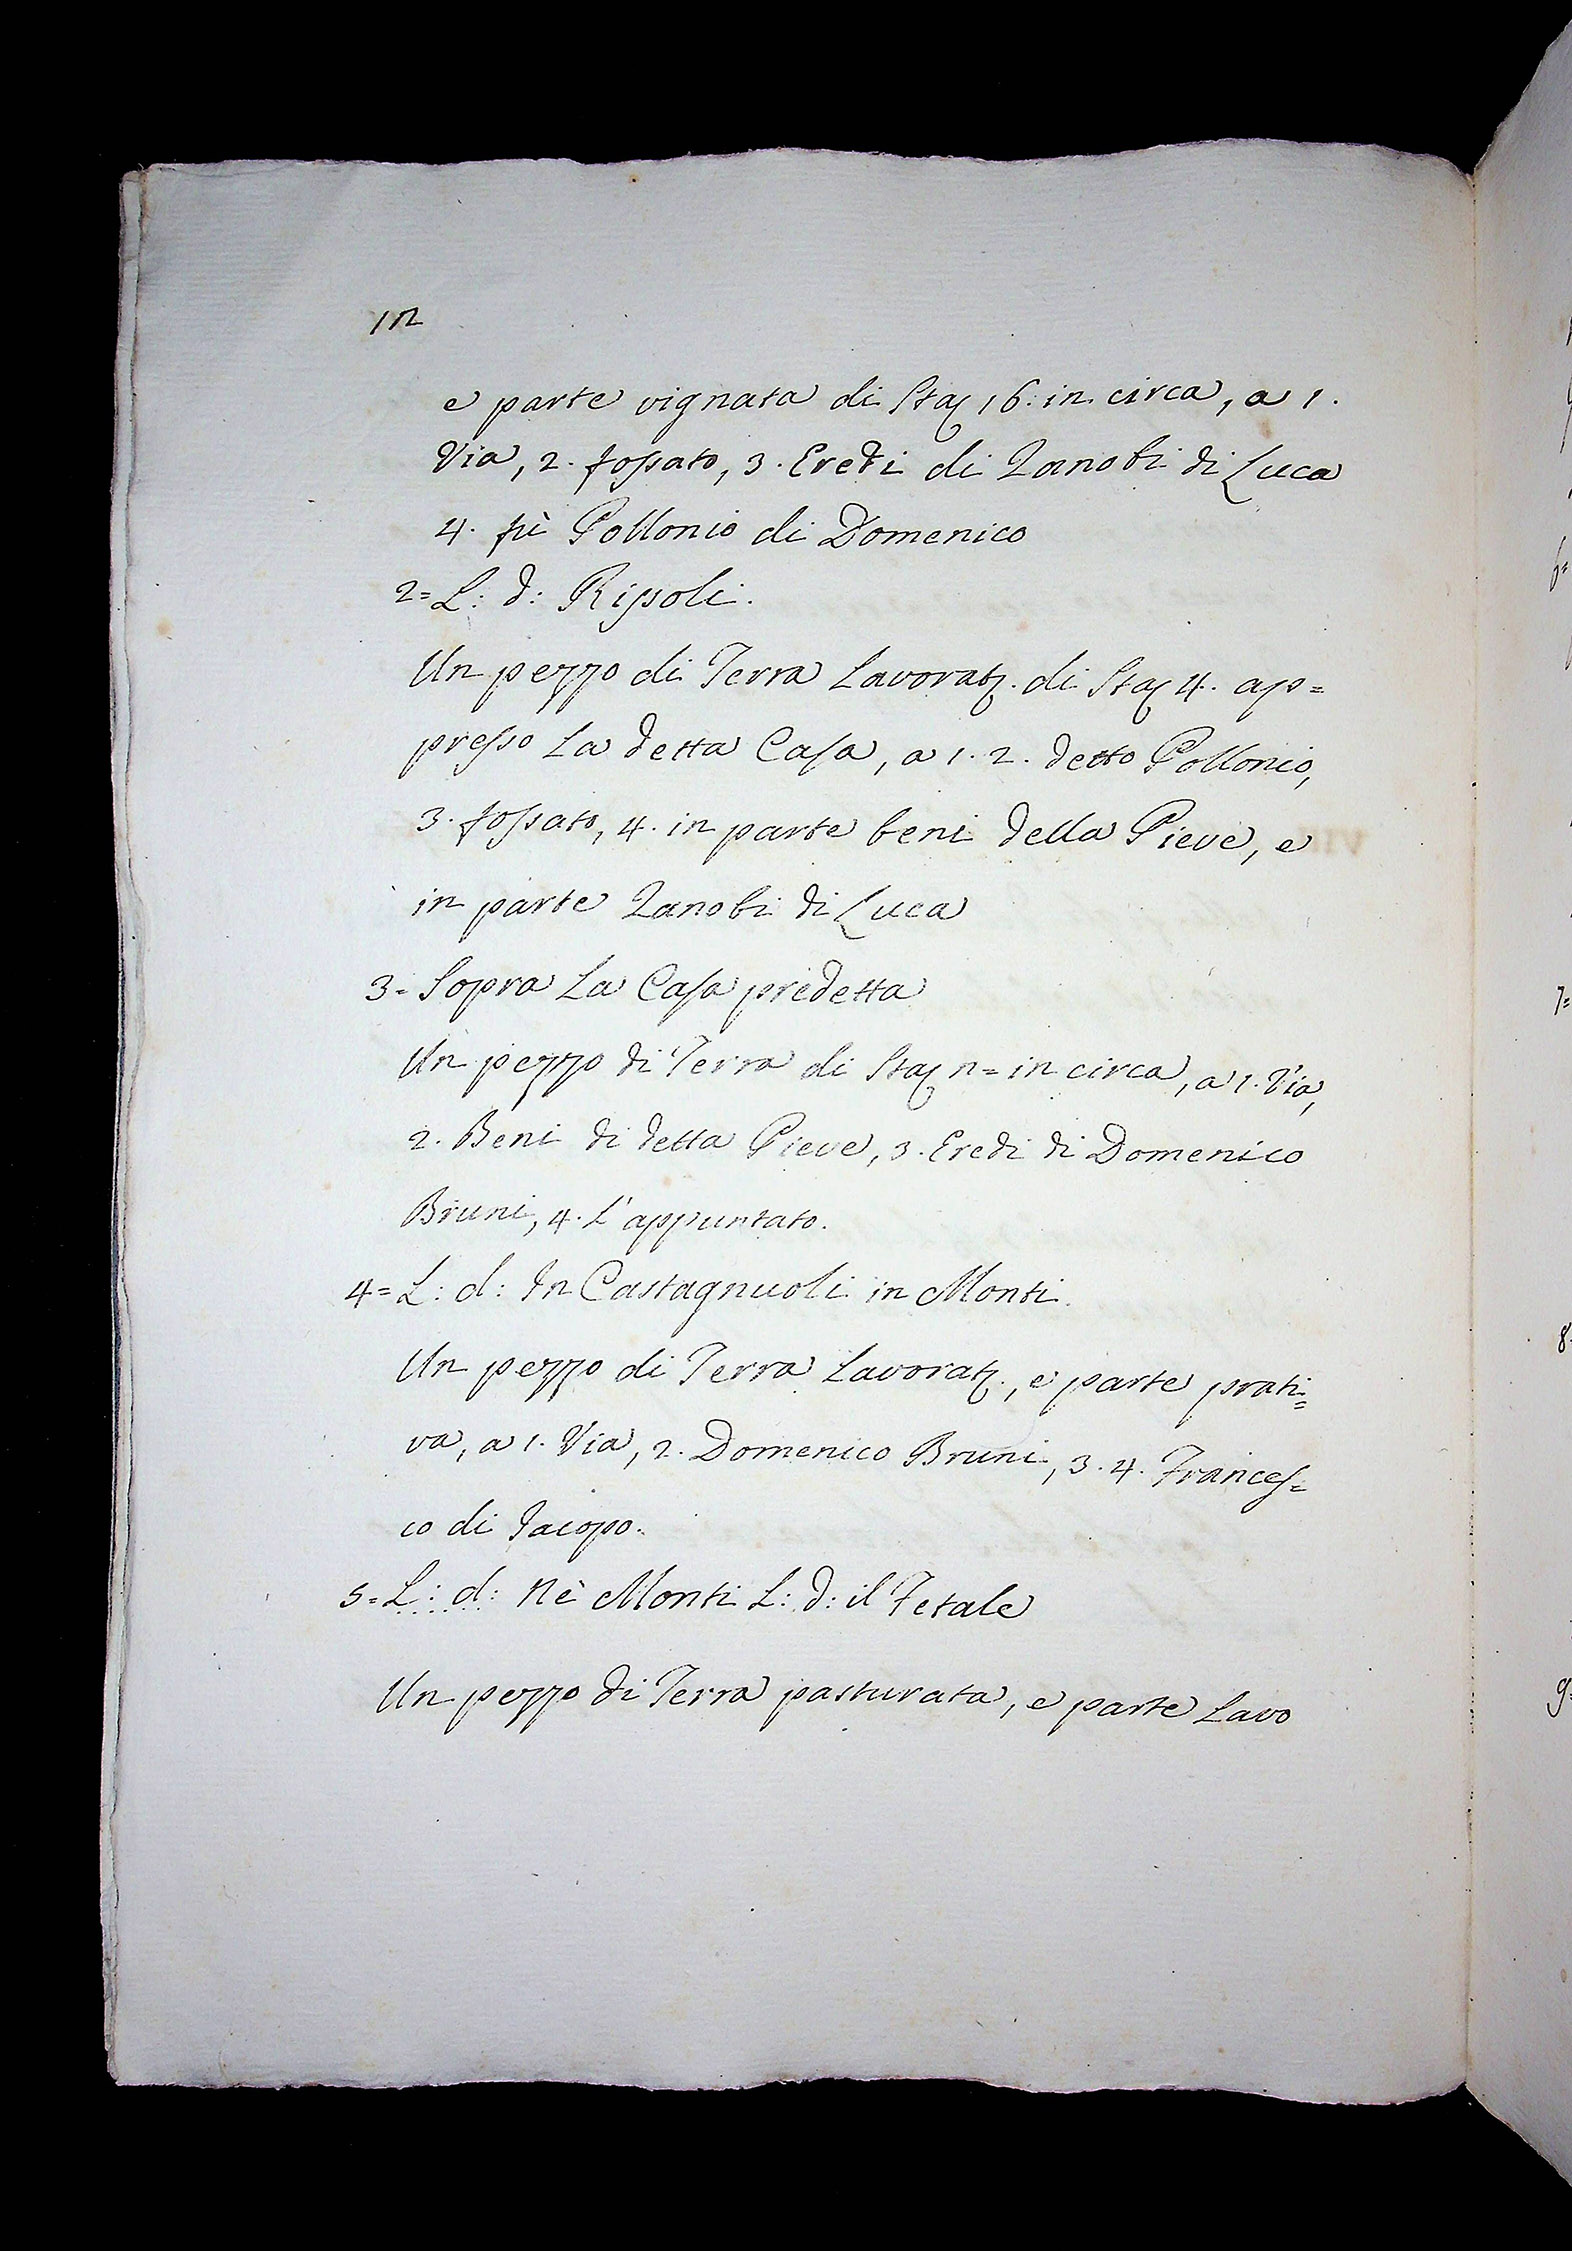 12
e parte vignata di Sta: 16: in circa, a 1.
Via, 2. fossato, 3. Eredi di Zanobi di Luca
4. fù Pollonio di Domenico
2= L: d: Ripoli.
Un pezzo di Terra Lavorat: di Sta: 4. ap=
presso La detta Casa, a 1. 2. detto Pollonio,
3. fossato, 4. in parte beni della Pieve, e
in parte Zanobi di Luca
3= Sopra La Casa predetta
Un pezzo di Terra di Sta: n= in circa, a 1. Via,
2. Beni di detta Pieve, 3. Eredi di Domenico
Bruni, 4. L'appuntato.
4= L: d: In Castagnuoli in Monti.
Un pezzo di Terra Lavorat:, e parte prati=
va, a 1. Via, 2. Domenico Bruni, 3. 4. Frances=
co di Jacopo.
5= L: d: Nè Monti L: d: il Fetale
Un pezzo di Terra pasturata, e parte Lavo